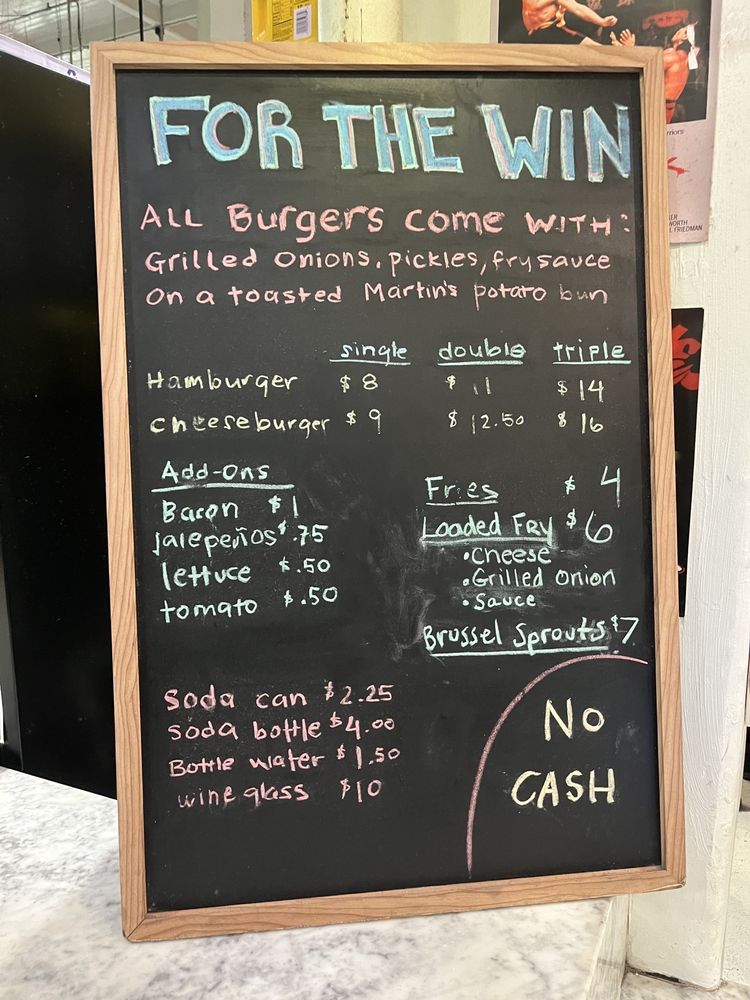 FOR THE WIN
ALL Burgers come WITH:
Grilled Onions, pickles, fry sauce
On a toasted Martin's potato bun
single double triple
Hamburger $8 $11 $14
cheeseburger $9 $12.50 $16
Add-Ons
Bacon $1
Jalepeños $.75
lettuce $.50
tomato $.50
Fries $4
Loaded Fry $6
•Cheese
•Grilled Onion
•Sauce
Brussel Sprouts $7
Soda can $2.25
Soda bottle $4.00
Bottle water $1.50
wine glass $10
No
CASH
riors
ER
WORTH
L FRIEDMAN